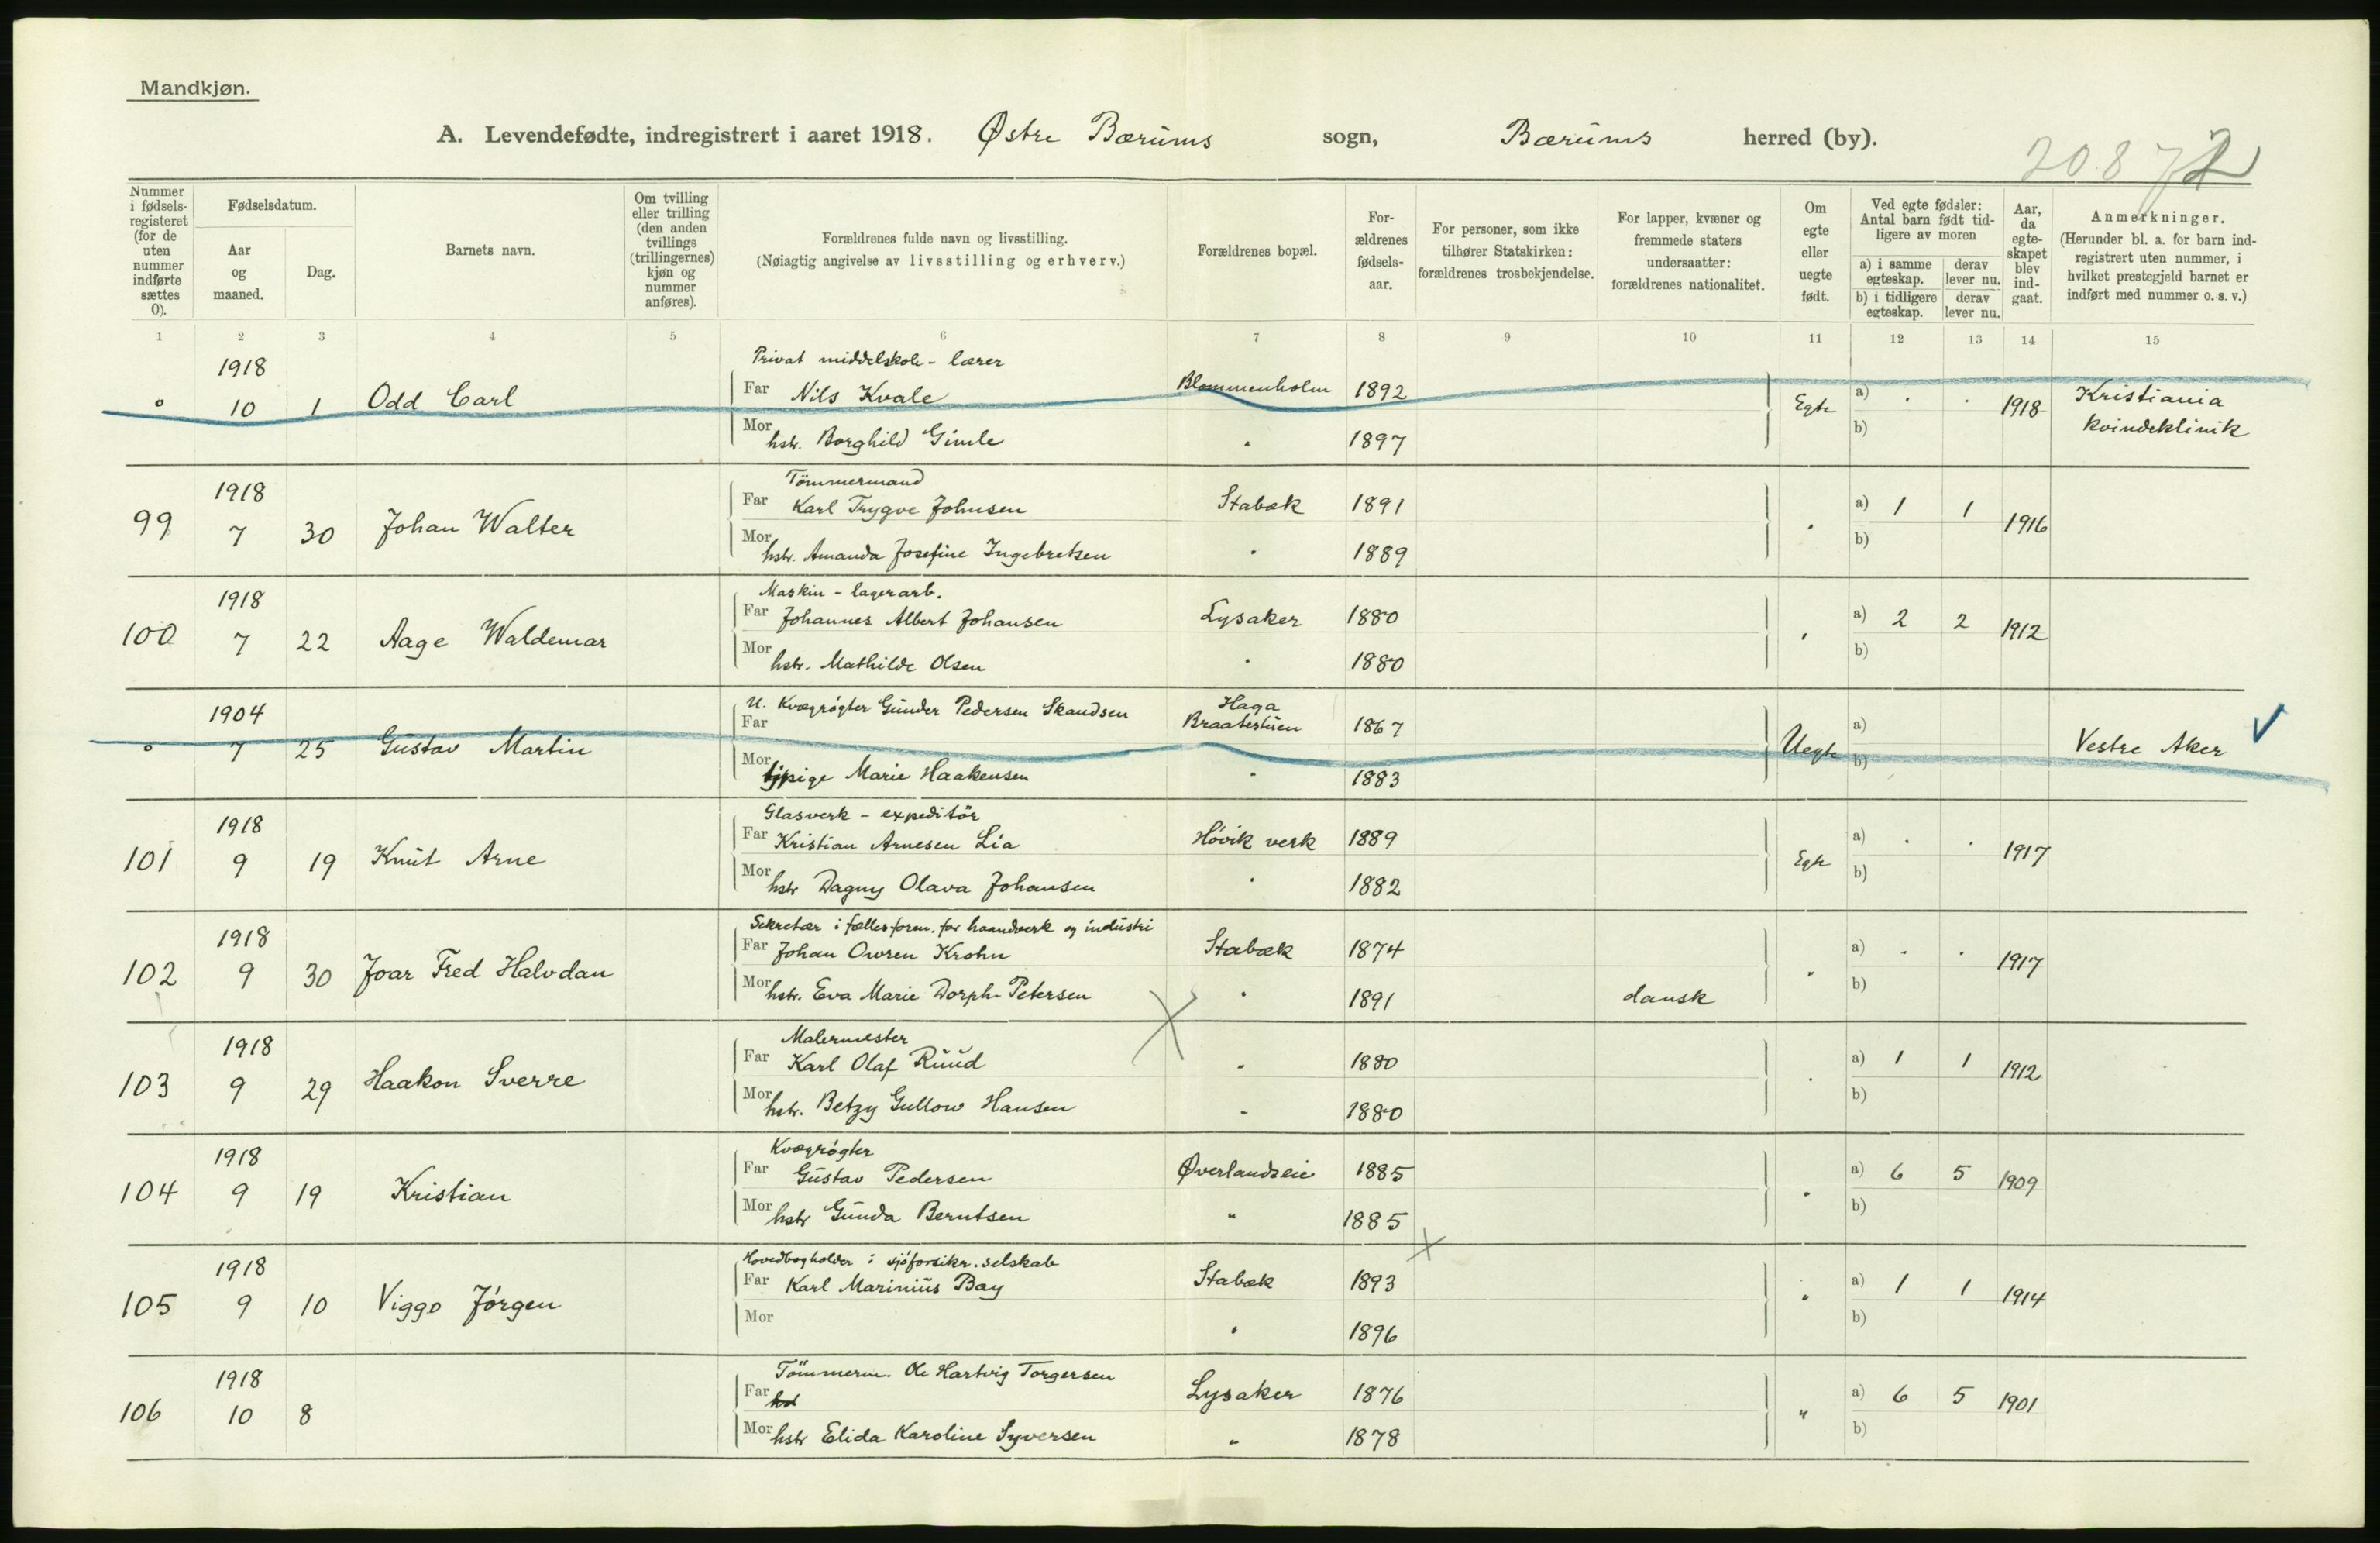 Mandkjøn.
A. Levendefødte, indregistrert i aaret 1918. Østre Bærums sogn, Bærums herred (by).
2087 2
Nummer i fødsels-registeret (for de uten nummer indførte sættes 0).
Fødselsdatum.
Aar og maaned.
Dag.
Barnets navn.
Om tvilling eller trilling (den anden tvillings (trillingernes) kjøn og nummer anføres).
Forældrenes fulde navn og livsstilling.
(Nøiagtig angivelse av livsstilling og erhverv.)
Forældrenes bopæl.
For-ældrenes fødsels-aar.
For personer, som ikke tilhører Statskirken: forældrenes trosbekjendelse.
For lapper, kvæner og fremmede staters undersaatter: forældrenes nationalitet.
Om egte eller uegte født.
Ved egte fødsler: Antal barn født tid-ligere av moren
a) i samme egteskap. derav lever nu.
b) i tidligere egteskap. derav lever nu.
Aar, da egte-skapet blev ind-gaat.
Anmerkninger.
(Herunder bl. a. for barn ind-registrert uten nummer, i hvilket prestegjeld barnet er indført med nummer o. s. v.)
1 2 3 4 5 6 7 8 9 10 11 12 13 14 15
1918 Privat middelskole-lærer
0 10 1 Odd Carl Far Nils Kvale Blommenholm 1892 Egte a) . . 1918 Kristiania
Mor hstr. Borghild Gimle " 1897 b) kvindeklinik
1918 Tömmermand
99 7 30 Johan Walter Far Karl Trygve Johnsen Stabæk 1891 " a) 1 1 1916
Mor hstr. Amanda Josefine Ingebretsen " 1889 b)
1918 Maskin-lagerarb.
100 7 22 Aage Waldemar Far Johannes Albert Johansen Lysaker 1880 " a) 2 2 1912
Mor hstr. Mathilde Olsen " 1880 b)
1904 U. Kvægrøgter Gunder Pedersen Skandsen Haga
0 7 25 Gustav Martin Far Braatestuen 1867 Uegte a) Vestre Aker
Mor tjpige Marie Haakensen " 1883 b)
1918 Glasverk-expeditör
101 9 19 Knut Arne Far Kristian Arnesen Lia Høvik verk 1889 Egte a) . . 1917
Mor hstr Dagny Olava Johansen " 1882 b)
1918 Sekretær i fællesforen. for haandverk og industri
102 9 30 Joar Fred Halvdan Far Johan Owren Krohn Stabæk 1874 " a) . . 1917
Mor hstr. Eva Marie Dorph-Petersen " 1891 dansk b)
1918 Malermester
103 9 29 Haakon Sverre Far Karl Olaf Ruud " 1880 " a) 1 1 1912
Mor hstr. Betzy Gullow Hansen " 1880 b)
1918 Kvægrøgter
104 9 19 Kristian Far Gustav Pedersen Øverlandseie 1885 " a) 6 5 1909
Mor hstr Gunda Berntsen " 1885 b)
1918 Hovedbogholder i sjøforsikr. selskab
105 9 10 Viggo Jørgen Far Karl Marinius Bay Stabæk 1893 " a) 1 1 1914
Mor " 1896 b)
1918 Tömmerm. Ole Hartvig Torgersen
106 10 8 Far Lysaker 1876 " a) 6 5 1901
Mor hstr Elida Karoline Syversen " 1878 b)